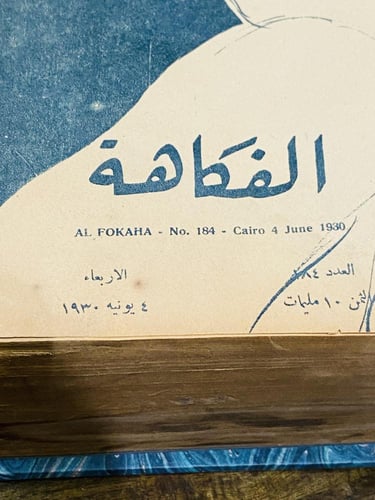 الفكاهة
AL FOKAHA - No. 184 - Cairo 4 June 1930
العدد ١٨٤
الاربعاء
الثمن ١٠ مليمات
٤ يونيه ١٩٣٠